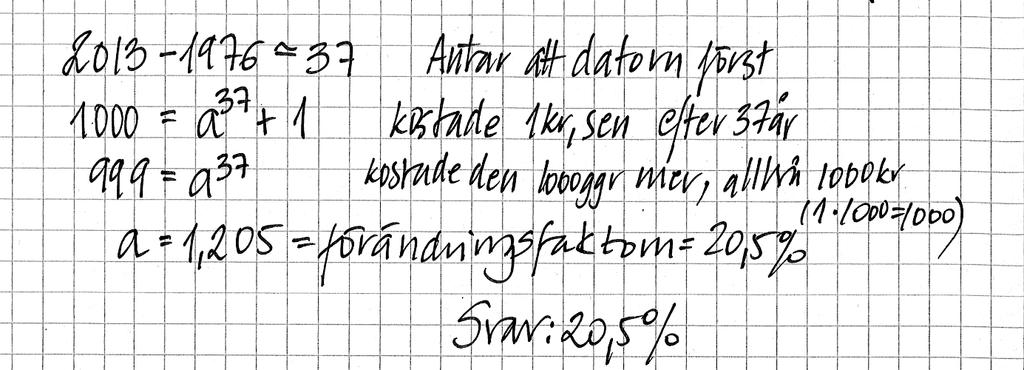 2013 - 1976 = 37 Antar att datorn först
1000 = a^37 + 1 kostade 1kr, sen efter 37år
999 = a^37 kostade den 1000ggr mer, alltså 1000kr
(1·1000=1000)
a = 1,205 = förändringsfaktorn = 20,5%
Svar: 20,5%